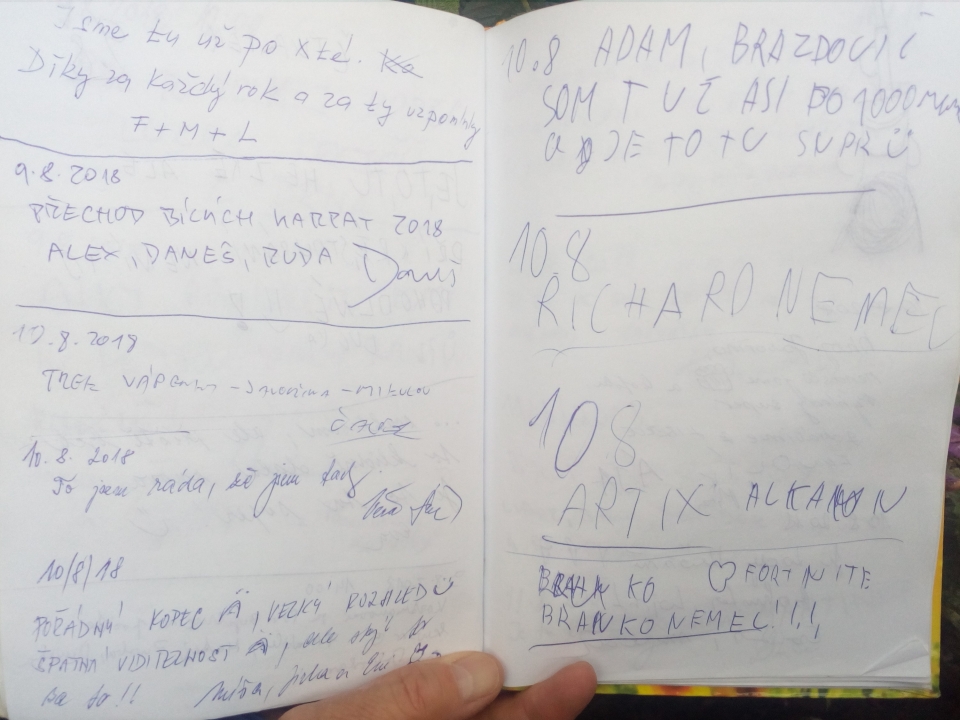 Jsme tu už po xté.
Díky za každý rok a za ty vzpomínky
F + M + L
9.8.2018
PŘECHOD BÍLÝCH KARPAT 2018
ALEX, DANEŠ, RUDA Daneš
10.8.2018
TREK VÁPENKY - Javořina - MIKULOV
10.8. 2018
To jsem ráda, že jsem tady
10/8/18
POŘÁDNÝ KOPEC, VELKÝ ROZHLED Ü
ŠPATNÁ VIDITELNOST, ale stojí
za to!!
10.8 ADAM, BRAZDOVIČ
SOM TU UŽ ASI PO 1000
A JE TO TU SUPR Ü
10.8
RICHARD NEMEC
10 8
ARTIX ALKAHON
BRANKO ♡ FORTNITE
BRANKO NEMEC!!!,